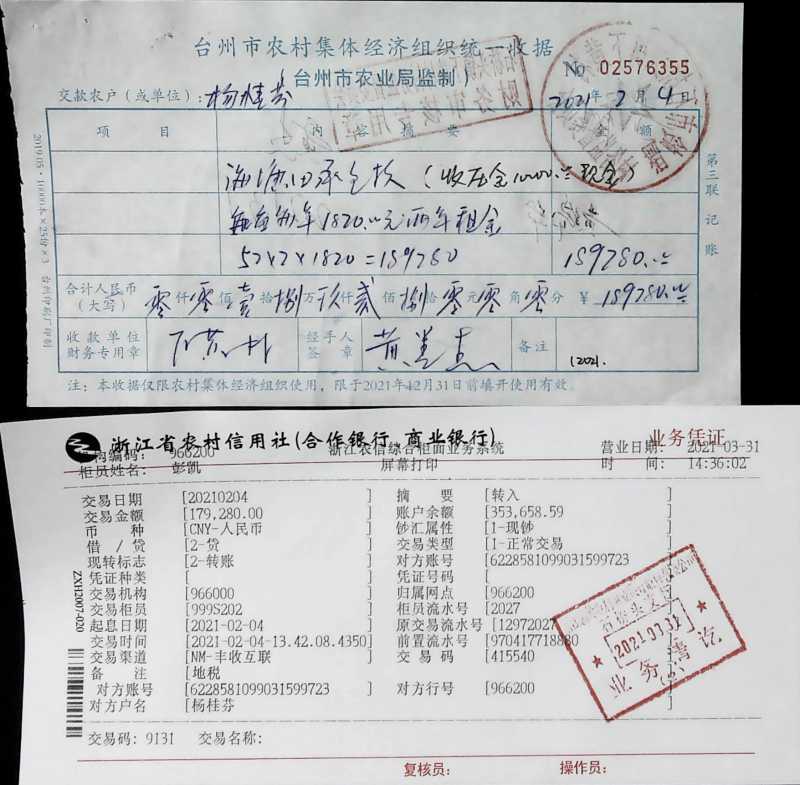 台州市农村集体经济组织统一收据
(台州市农业局监制)
No 02576355
交款农户(或单位): 杨桂芬
2021年2月4日
项 目 内 容 摘 要 金 额
海塘田承包款(收压金10000.00现金)
每亩每年1820.00元两年租金
52×2×1820=189280
189280.00
合计人民币(大写) 零仟零佰壹拾捌万玖仟贰佰捌拾零元零角零分 ¥ 189280.00
收款单位财务专用章
经手人签章
备注
(2021.
注:本收据仅限农村集体经济组织使用,限于2021年12月31日前填开使用有效。
第三联 记账
财务审核专用章
浙江省农村信用社(合作银行、商业银行) 业务凭证
机构编码: 966200 浙江农信综合柜面业务系统 营业日期: 2021-03-31
柜员姓名: 彭凯 屏幕打印 时 间: 14:36:02
交易日期 [20210204 ] 摘 要 [转入 ]
交易金额 [179,280.00 ] 账户余额 [353,658.59 ]
币 种 [CNY-人民币 ] 钞汇属性 [1-现钞 ]
借 / 贷 [2-贷 ] 交易类型 [1-正常交易 ]
现转标志 [2-转账 ] 对方账号 [6228581099031599723 ]
凭证种类 [ ] 凭证号码 [ ]
交易机构 [966000 ] 归属网点 [966200 ]
交易柜员 [999S202 ] 柜员流水号 [2027
起息日期 [2021-02-04 ] 原交易流水号 [12972027
交易时间 [2021-02-04-13.42.08.4350] 前置流水号 [970417718880
交易渠道 [NM-丰收互联 ] 交 易 码 [415540
备 注 [地税 ]
对方账号 [6228581099031599723 ] 对方行号 [966200 ]
对方户名 [杨桂芬 ]
交易码: 9131 交易名称:
复核员: 操作员:
ZXH2007-020
2021.03.31
业务清讫